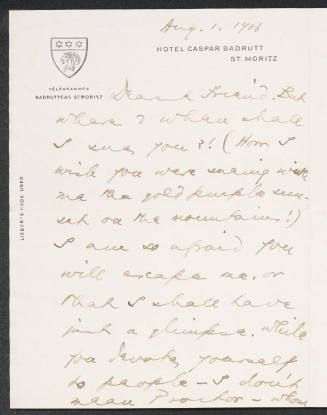 Aug. 1. 1906
HOTEL CASPAR BADRUTT
ST. MORITZ
TÉLÉGRAMMES
BADRUTTEAS STMORITZ
LIEBER'S CODE USED
Dearest Friend. But
where & when shall
I see you?! (How I
wish you were seeing with
me the gold purple sun-
set on the mountains!)
I am so afraid you
will escape me, or
that I shall have
just a glimpse. While
you devote yourself
to people – I don't
mean Proctor – whom